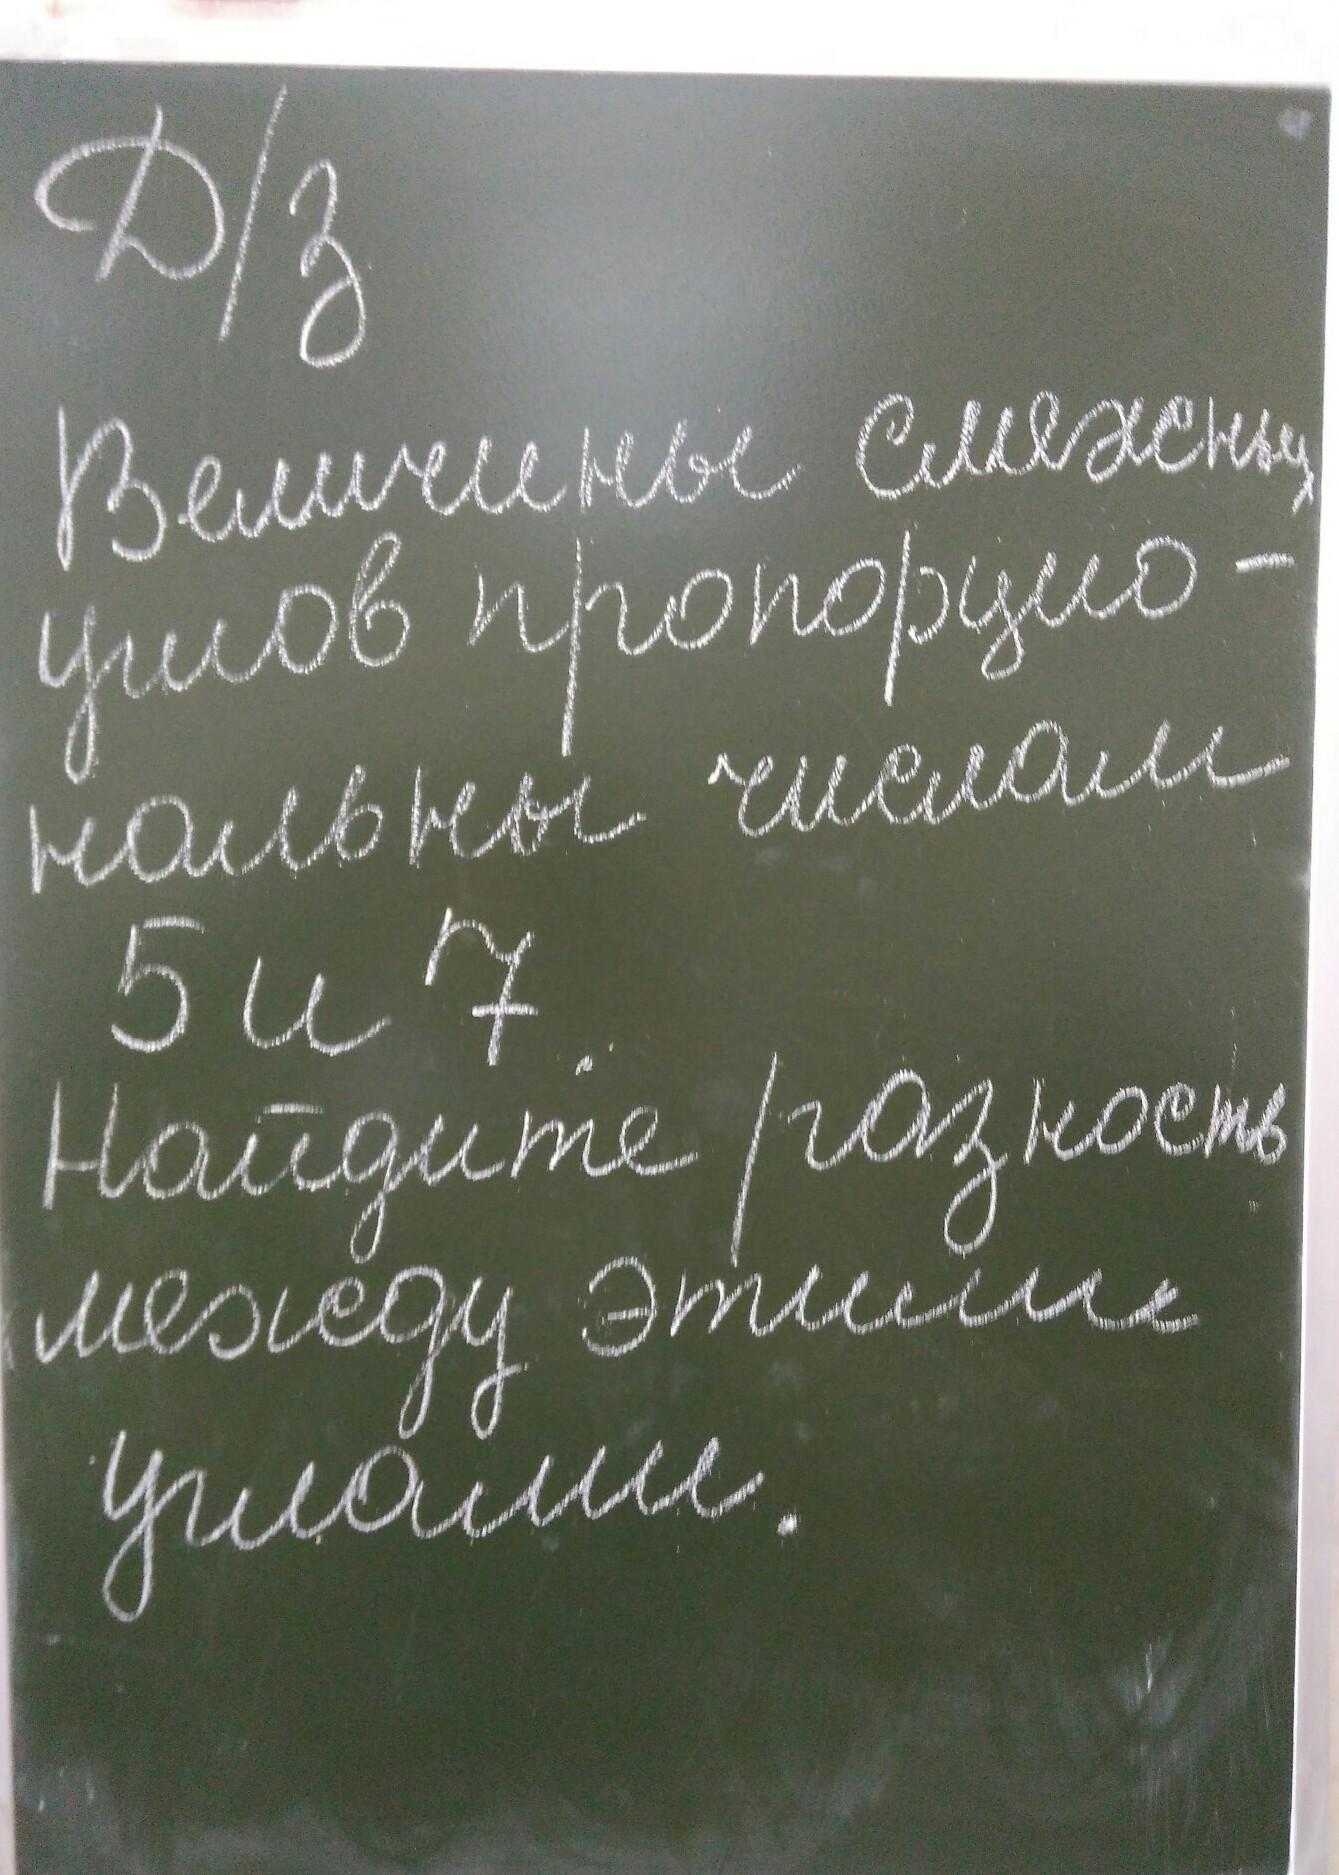 Д/З
Величины смежных
углов пропорцио-
нальны числам
5 и 7.
Найдите разность
между этими
углами.